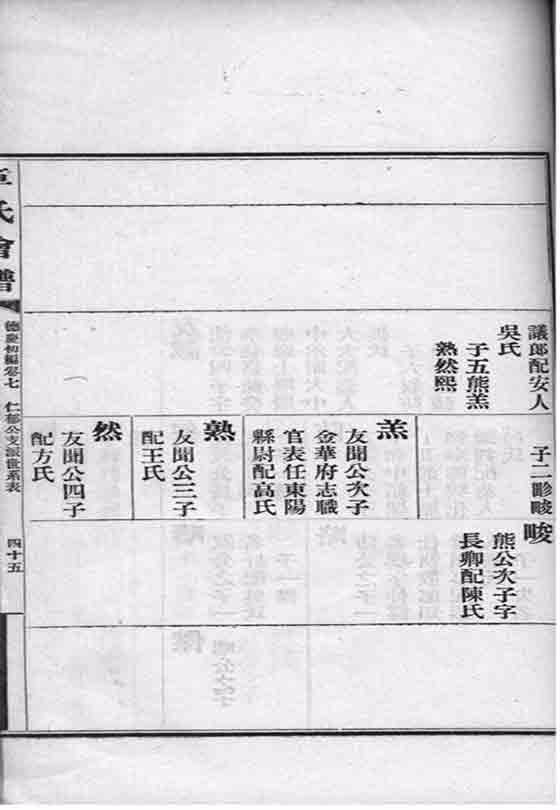 議郎配安人
吳氏
子五熊羔
熟然熙
子二畛畯
羔
友聞公次子
金華府志職
官表任東陽
縣尉配高氏
熟
友聞公三子
配王氏
然
友聞公四子
配方氏
畯
熊公次子字
長卿配陳氏
章氏會譜
德慶初編卷七
仁郁公支派世系表
四十五